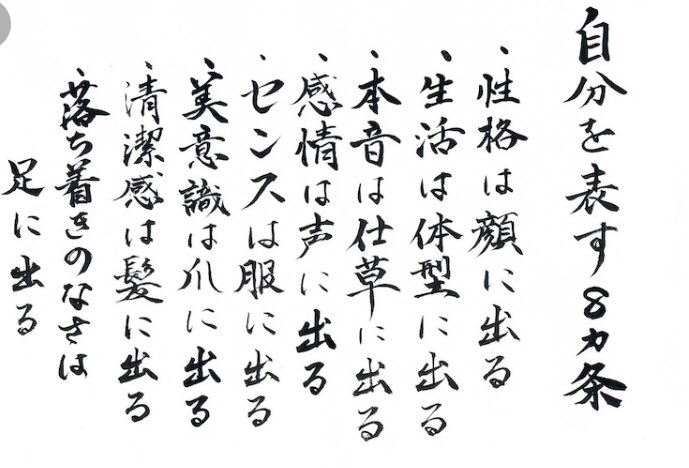 自分を表す8カ条
・性格は顔に出る
・生活は体型に出る
・本音は仕草に出る
・感情は声に出る
・センスは服に出る
・美意識は爪に出る
・清潔感は髪に出る
・落ち着きのなさは
足に出る